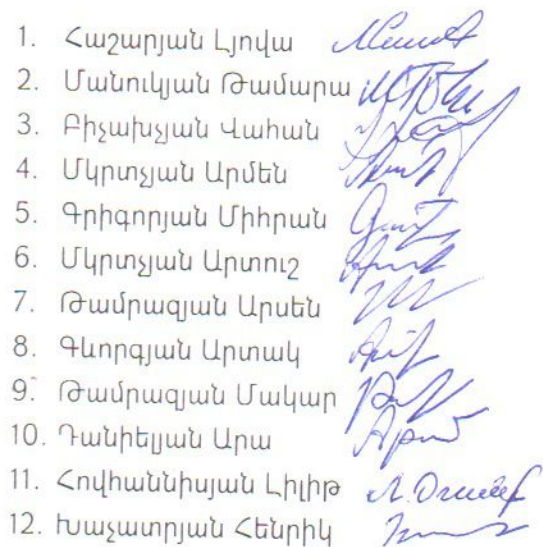 1. Հաշարյան Լյովա
2. Մանուկյան Թամարա
3. Բիչախչյան Վահան
4. Մկրտչյան Արմեն
5. Գրիգորյան Միհրան
6. Մկրտչյան Արտուշ
7. Թամրազյան Արսեն
8. Գևորգյան Արտակ
9. Թամրազյան Մակար
10. Դանիելյան Արա
11. Հովհաննիսյան Լիլիթ
12. Խաչատրյան Հենրիկ